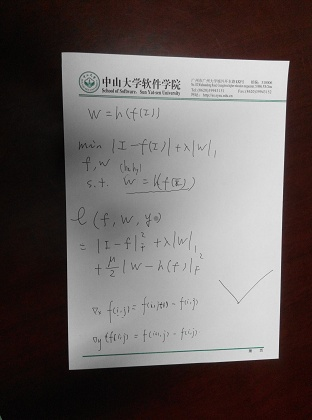 中山大学软件学院
School of Software, Sun Yat-sen University
W = h(f(I))
min |I - f(I)| + λ|W|₁
f, W
s.t. W = h(f(I))
ℓ(f, W, y)
= |I - f|²_F + λ|W|₁
+ μ/2 |W - h(f)|²_F
∇x f(i,j) = f(i,j+1) - f(i,j)
∇y f(i,j) = f(i+1,j) - f(i,j)